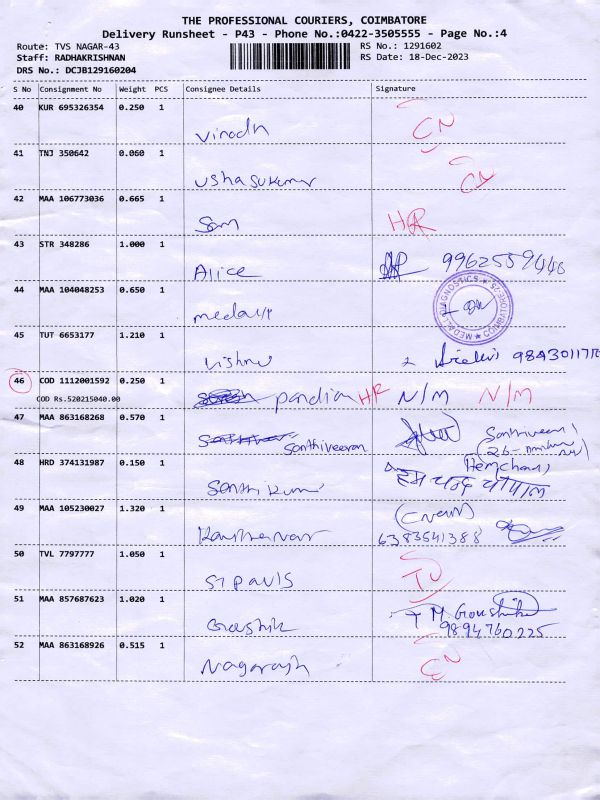 THE PROFESSIONAL COURIERS, COIMBATORE
Delivery Runsheet - P43 - Phone No.:0422-3505555 - Page No.:4
Route: TVS NAGAR-43 RS No.: 1291602
Staff: RADHAKRISHNAN RS Date: 18-Dec-2023
DRS No.: DCJB129160204
S No Consignment No Weight PCS Consignee Details Signature
40 KUR 695326354 0.250 1
Vinodh CN
41 TNJ 350642 0.060 1
Ushasukumar
42 MAA 106773036 0.665 1
Sam HR
43 STR 348286 1.000 1
Alice 9962559448
44 MAA 104048253 0.650 1
medall
MEDALL DIAGNOSTICS ★ COIMBATORE
45 TUT 6653177 1.210 1
Vishnu
46 COD 1112001592 0.250 1
COD Rs.520215040.00
pandian HR N/M N/M
47 MAA 863168268 0.570 1
Santhiveeran Santhiveeran
48 HRD 374131987 0.150 1
Santhi kumar
49 MAA 105230027 1.320 1
6383541388
50 TVL 7797777 1.050 1
St pauls
51 MAA 857687623 1.020 1
Goushik M Goushik
9894760225
52 MAA 863168926 0.515 1
Nagarajh CN